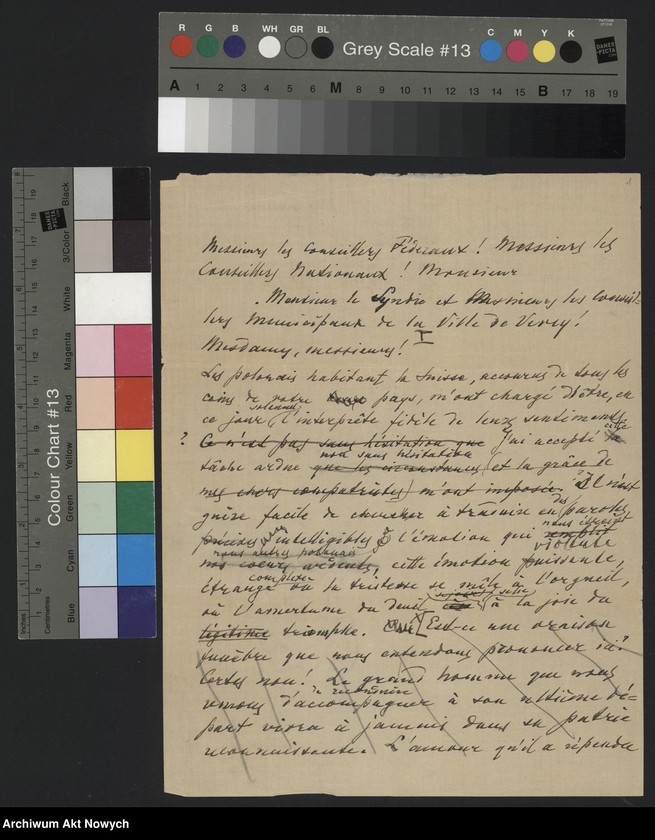 R G B WH GR BL Grey Scale #13 C M Y K
DANES PICTA
A 1 2 3 4 5 6 M 8 9 10 11 12 13 14 15 B 17 18 19
Colour Chart #13
Black
3/Color
White
Magenta
Red
Yellow
Green
Cyan
Blue
Inches
Centimetres
1
Messieurs les Conseillers Fédéraux ! Messieurs les
Conseillers Nationaux ! Monsieur
Monsieur le Syndic et Messieurs les Conseil-
lers Municipaux de la Ville de Vevey !
I
Mesdames, messieurs !
Les polonais habitant la Suisse, accourus de tous les
coins de votre pays, m'ont chargé d'être, en
ce jour solennel, l'interprète fidèle de leurs sentiments.
? Ce n'est pas sans hésitation que j'ai accepté cette
non sans hésitation
tâche ardue que les circonstances et la grâce de
mes chers compatriotes) m'ont imposée. Il n'est
guère facile de chercher à traduire en des paroles
précises intelligibles l'émotion qui nous étreint
nous autres polonais violente
nos coeurs ardents, cette émotion puissante,
étrange où la tristesse se mêle à l'orgueil,
complexe
où l'amertume du deuil à la joie du
légitime triomphe. Est-ce une oraison
funèbre que nous entendons prononcer ici?
Certes non! Le grand homme que nous
venons d'accompagner à son ultième dé-
part vivra à jamais dans sa patrie
reconnaissante. L'amour qu'il a répandu
Archiwum Akt Nowych